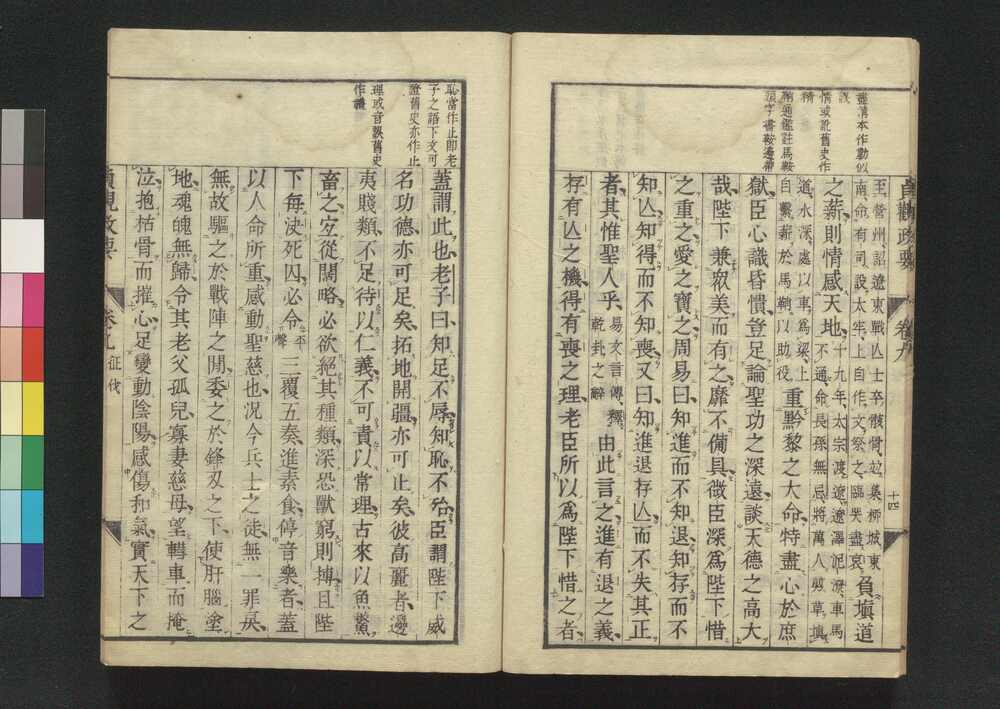 盡情本作動似
誤
情或訛舊史作
精
鞘通鑑註馬鞍
頭字書鞍邊帶
貞觀政要 卷九 十四
至營州詔遼東戰亾士卒骸骨竝集柳城東
南命有司設太牢上自作文祭之臨哭盡哀
負塡道
之薪則情感天地
十九年太宗渡遼遼澤泥潦車馬
不通命長孫無忌將萬人剪草塡
道水深處以車爲梁上
自繫薪於馬鞘以助役
重黔黎之大命特盡心於庶
獄臣心識昏憒豈足論聖功之深遠談天德之高大
哉陛下兼衆美而有之靡不備具微臣深爲陛下惜
之重之愛之寶之周易曰知進而不知退知存而不
知亾知得而不知喪又曰知進退存亾而不失其正
者其惟聖人乎
易文言傳釋
乾卦之辭
由此言之進有退之義
存有亾之機得有喪之理老臣所以爲陛下惜之者
恥當作止即老
子之語下文可
證舊史亦作止
理或音誤舊史
作禮
蓋謂此也老子曰知足不辱知恥不殆臣謂陛下威
名功德亦可足矣拓地開疆亦可止矣彼高麗者邊
夷賤類不足待以仁義不可責以常理古來以魚鱉
畜之宐從闊略必欲絕其種類深恐獸窮則搏且陛
下每決死囚必令
平
聲
三覆五奏進素食停音樂者蓋
以人命所重感動聖慈也况今兵士之徒無一罪戾
無故驅之於戰陣之閒委之於鋒刃之下使肝腦塗
地魂魄無歸令其老父孤兒寡妻慈母望轊車而掩
泣抱枯骨而摧心足變動陰陽感傷和氣實天下之
貞觀政要 卷九 征伐